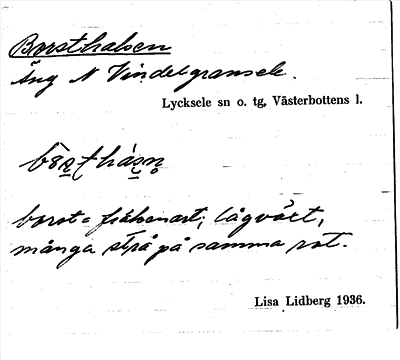 Borsthalsen
Äng N Vindelgransele.
Lycksele sn o. tg, Västerbottens l.
borst = , lågväxt,
många strå på samma rot.
Lisa Lidberg 1936.